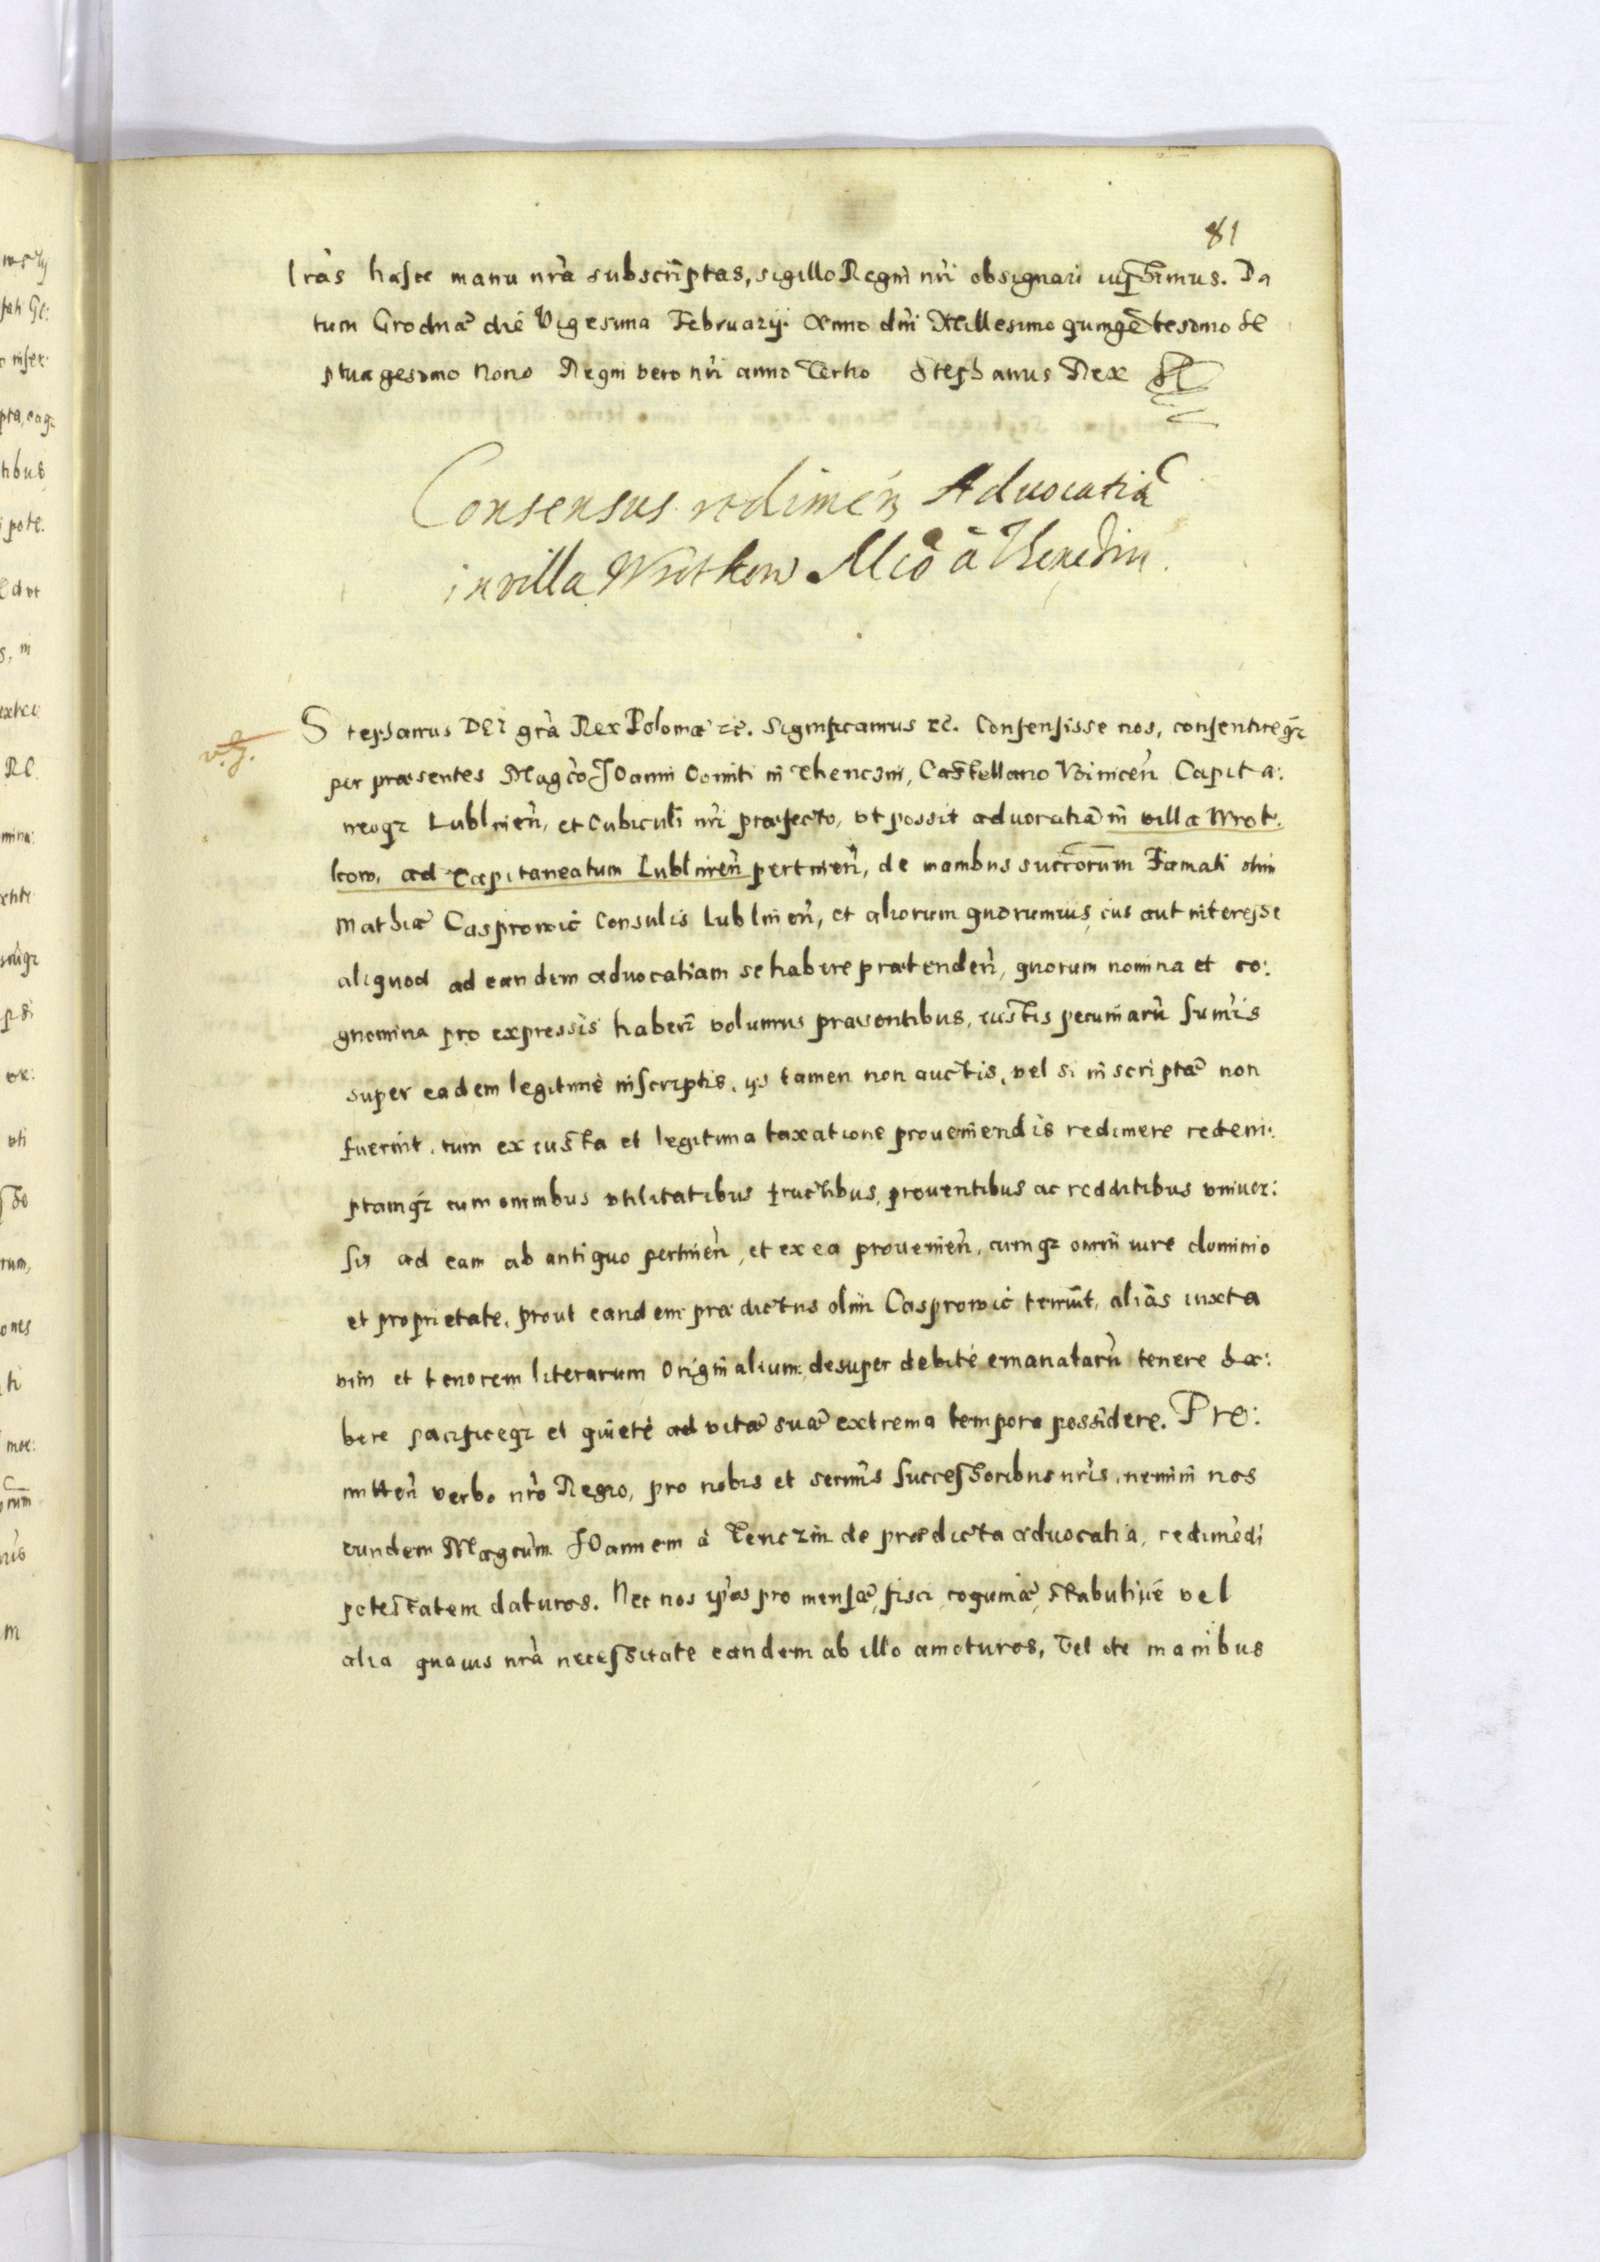 81
lrãs hasce manu nrã subscriptas, sigillo Regni nri obsignari iussimus. Da
tum Grodnæ die Vigesima Februarij. Anno dni Millesimo quingẽtesimo se
ptuagesimo Nono Regni vero nri anno Tertio Stephanus Rex
Consensus redimen Advocatiã
in villa Wrotkow Mco à Thenczin
Stephanus DEI grã Rex Poloniæ etc. Significamus etc. Consensisse nos, consentireq;
per præsentes Magco JOanni Comiti in Thenczin, Castellano Voinicen Capita:
neoq; Lublinen, et Cubiculi nri præfecto, ut possit advocatiã in villa Wrot:
kow, ad Capitaneatum Lublinen pertinen, de manibus succorum Famati olim
Mathiæ Casprowic Consulis Lublinen, et aliorum quorumvis, ius aut interesse
aliquod ad eandem advocatiam se habere prætenden, quorum nomina et co:
gnomina pro expressis haberi volumus præsentibus, iustis pecuniarũ sumis
super eadem legitimè inscriptis, ijs tamen non auctis, vel si inscriptæ non
fuerint, tum ex iusta et legitima taxatione proveniendis redimere redem:
ptamq; cum omnibus utilitatibus fructibus, proventibus ac redditibus univer:
sis ad eam ab antiquo pertinen, et ex ea provenien, cumq; omni iure dominio
et proprietate, prout eandem prædictus olim Casprowic tenuit, aliàs iuxta
vim et tenorem literarum Originalium desuper debitè emanatarũ tenere ha:
bere pacificeq; et quietè ad vitæ suæ extrema tempora possidere. Pro:
mitten verbo nro Regio, pro nobis et sermis Successoribus nris, nemini nos
eundem Magcum JOannem à Tenczin de prædicta advocatia, redimẽdi
potestatem daturos. Nec nos ipsos pro mensæ, fisci, coquinæ, stabulive vel
alia quavis nrã necessitate eandem ab illo amoturos, Vel de manibus